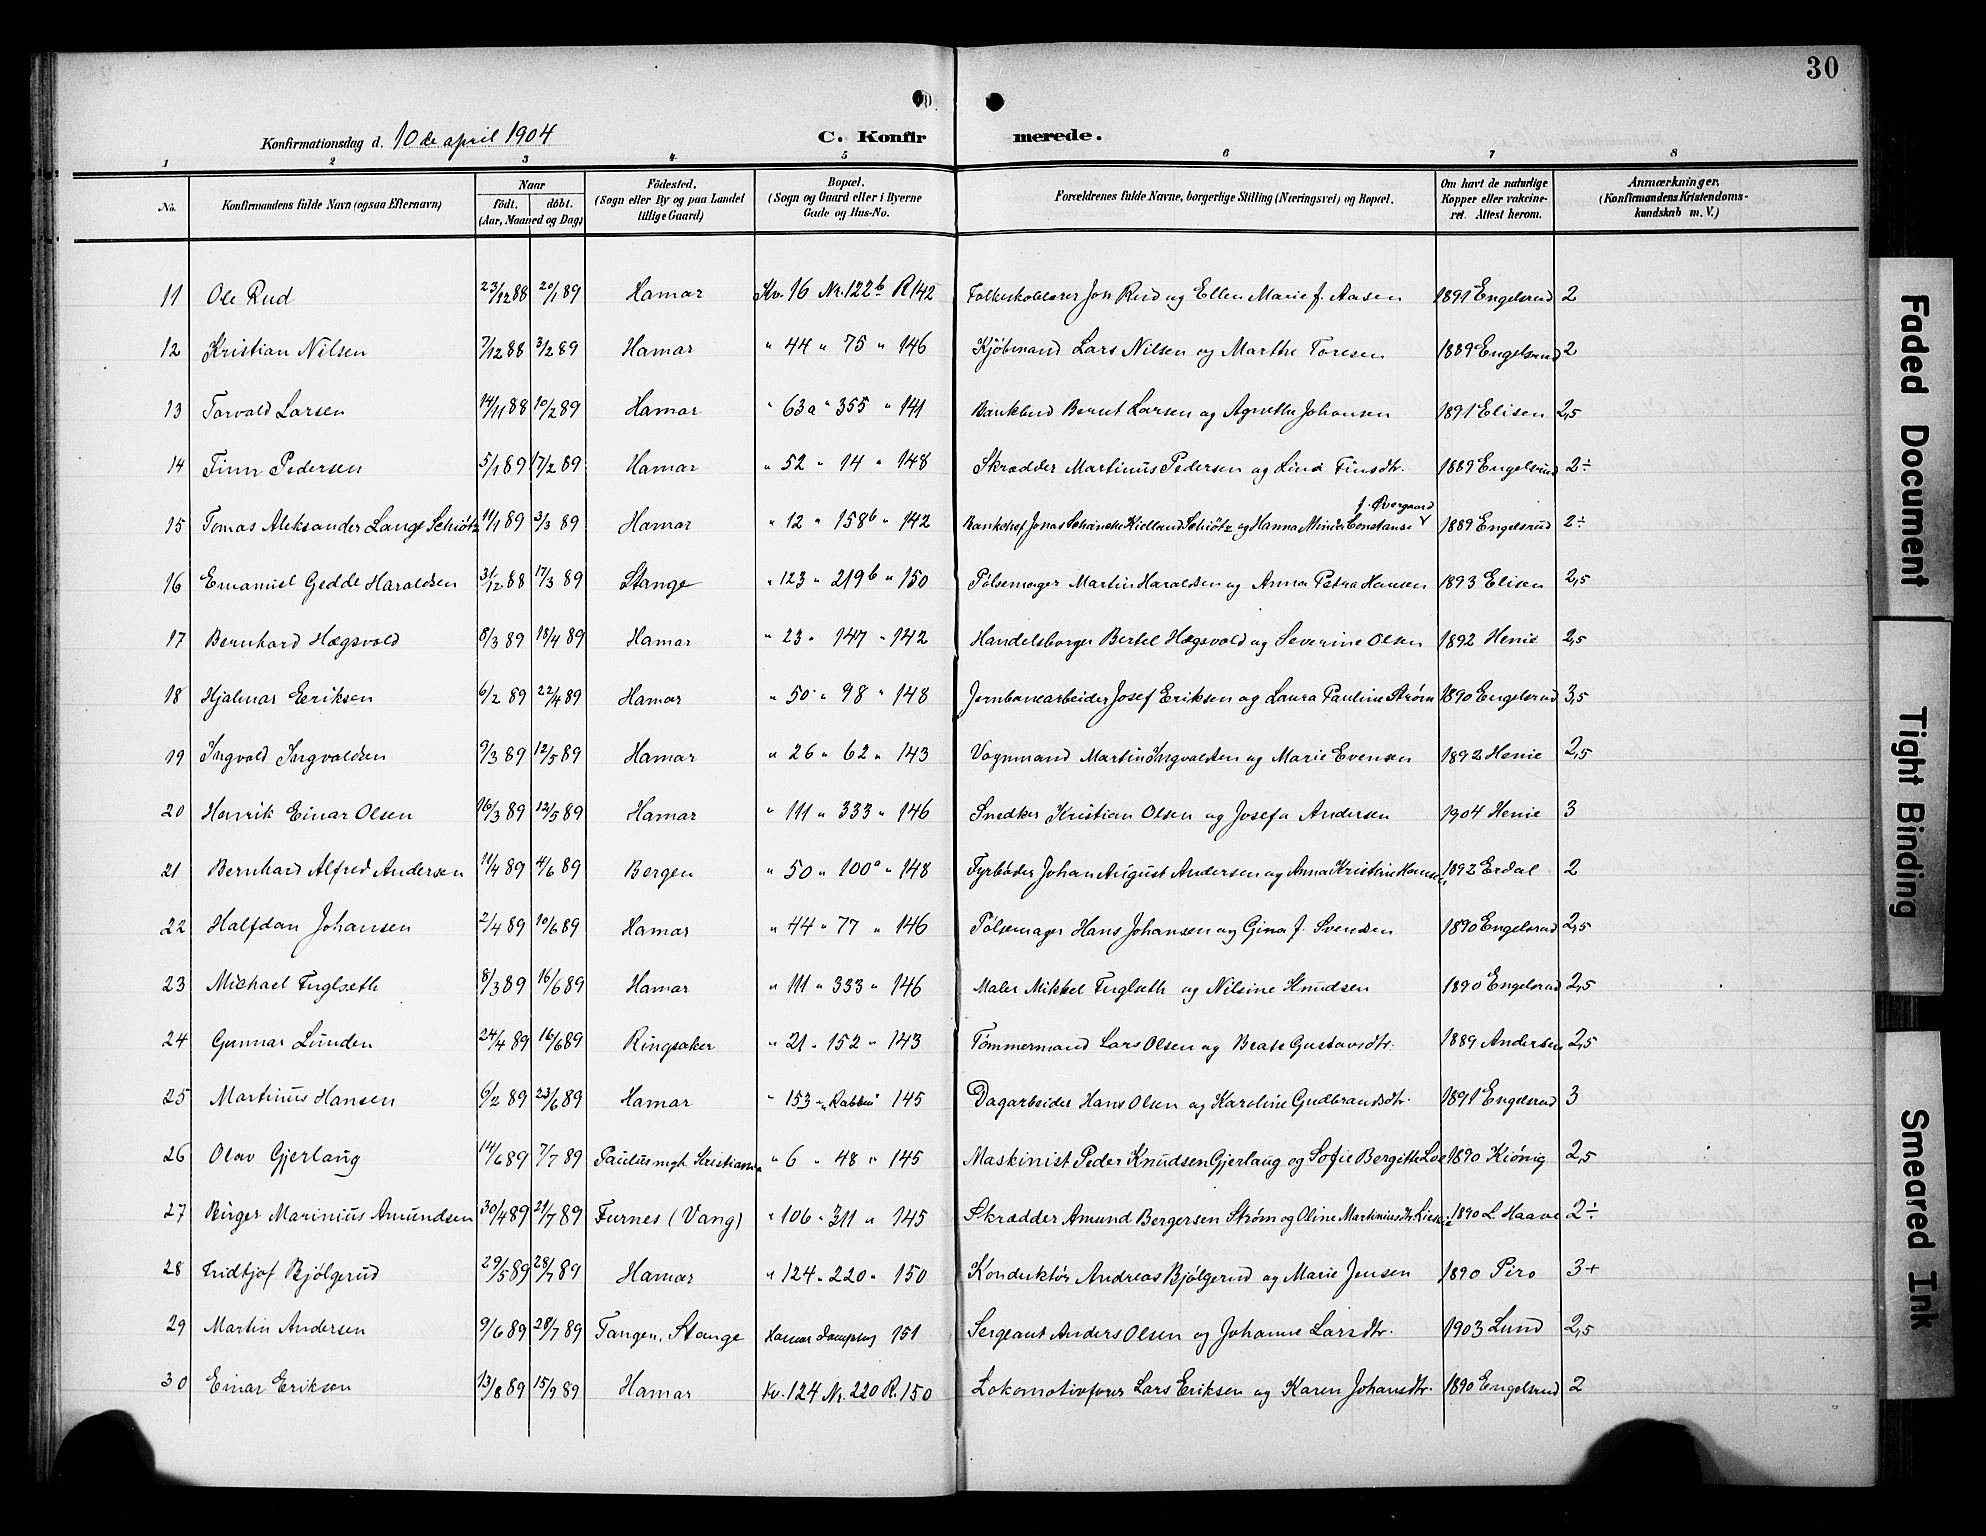 30
Konfirmationsdag d. 10de april 1904
C. Konfirmerede.
1 2 3 4 5 6 7 8
No. Konfirmandens fulde Navn (ogsaa Efternavn) Naar født. døbt. (Aar, Maaned og Dag) Födested. (Sogn eller By og paa Landet tillige Gaard) Bopæl. (Sogn og Gaard eller i Byerne Gade og Hus-No. Forældrenes fulde Navne, borgerlige Stilling (Næringsvei) og Bopæl. Om havt de naturlige Kopper eller vakcineret. Attest herom. Anmærkninger. (Konfirmandens Kristendomskundskab m. V.)
11 Ole Rud 23/12 88 20/1 89 Hamar Kv. 16 Nr. 122b R 142 Folkeskolelærer Jon Rud og Ellen Marie f. Aasen 1891 Engelsrud 2
12 Kristian Nilsen 7/12 88 3/2 89 Hamar " 44 " 75 " 146 Kjøbmand Lars Nilsen og Marthe Toresen 1889 Engelsrud 2
13 Torvald Larsen 14/11 88 10/2 89 Hamar " 63a " 355 " 141 Bankbud Bernt Larsen og Agnethe Johansen 1891 Elisen 2,5
14 Finn Pedersen 5/1 89 17/2 89 Hamar " 52 " 14 " 148 Skrædder Martinus Pedersen og Lina Finsdtr. 1889 Engelsrud 2÷
f. Overgaard
15 Tomas Aleksander Lange Schiøtz 11/1 89 3/3 89 Hamar " 12 " 158b " 142 Bankchef Jonas Schanche Kielland Schiøtz og Hanna Minda Constanse 1889 Engelsrud 2÷
16 Emanuel Gedde Haraldsen 31/12 88 17/3 89 Stange " 123 " 219b " 150 Pølsemager Martin Haraldsen og Anna Petra Hansen 1893 Elisen 2,5
17 Bernhard Hægsvold 8/3 89 18/4 89 Hamar " 23 " 147 " 142 Handelsborger Bertel Hægsvold og Severine Olsen 1892 Henie 2,5
18 Hjalmar Eriksen 6/2 89 22/4 89 Hamar " 50 " 98 " 148 Jernbanearbeider Josef Eriksen og Laura Pauline Strøm 1890 Engelsrud 3,5
19 Ingvald Ingvaldsen 9/3 89 12/5 89 Hamar " 26 " 62 " 143 Vognmand Martin Ingvaldsen og Marie Evensen 1892 Henie 2,5
20 Henrik Einar Olsen 16/3 89 12/5 89 Hamar " 111 " 333 " 146 Snedker Kristian Olsen og Josefa Andersen 1904 Henie 3
21 Bernhard Alfred Andersen 11/4 89 4/6 89 Bergen " 50 " 100a " 148 Fyrbøder Johan August Andersen og Anna Kristine Hansen 1892 Erdal 2
22 Halfdan Johansen 2/4 89 10/6 89 Hamar " 44 " 77 " 146 Pølsemager Hans Johansen og Gina f. Svendsen 1890 Engelsrud 2,5
23 Michael Fuglseth 8/3 89 16/6 89 Hamar " 111 " 333 " 146 Maler Mikkel Fuglseth og Nilsine Knudsen 1890 Engelsrud 2,5
24 Gunnar Lunden 24/4 89 16/6 89 Ringsaker " 21 " 152 " 143 Tømmermand Lars Olsen og Beate Gustavsdtr. 1889 Andersen 2,5
25 Martinus Hansen 6/2 89 23/6 89 Hamar " 153 " 145 Dagarbeider Hans Olsen og Karoline Gudbrandsdtr. 1891 Engelsrud 3
26 Olav Gjerlaug 14/6 89 7/7 89 Paulusmgh. Kristiania " 6 " 48 " 145 Maskinist Peder Knudsen Gjerlaug og Sofie Bergitte 1890 Kiønig 2,5
27 Birger Marinius Amundsen 30/4 89 21/7 89 Furnes (Vang) " 106 " 311 " 145 Skrædder Amund Bergersen Strøm og Oline Martiniusdtr. 1890 L. Haave 2÷
28 Fridtjof Bjølgerud 29/5 89 28/7 89 Hamar " 124 " 220 " 150 Konduktør Andreas Bjølgerud og Marie Jensen 1890 Piro 3+
29 Martin Andersen 9/6 89 28/7 89 Tangen, Stange Hamar Dampsag 151 Sergeant Anders Olsen og Johanne Larsdtr. 1903 Lund 2,5
30 Einar Eriksen 13/8 89 15/9 89 Hamar Kv. 124 Nr. 220 R. 150 Lokomotivfører Lars Eriksen og Karen Johansdtr. 1890 Engelsrud 2
Faded Document
Tight Binding
Smeared Ink